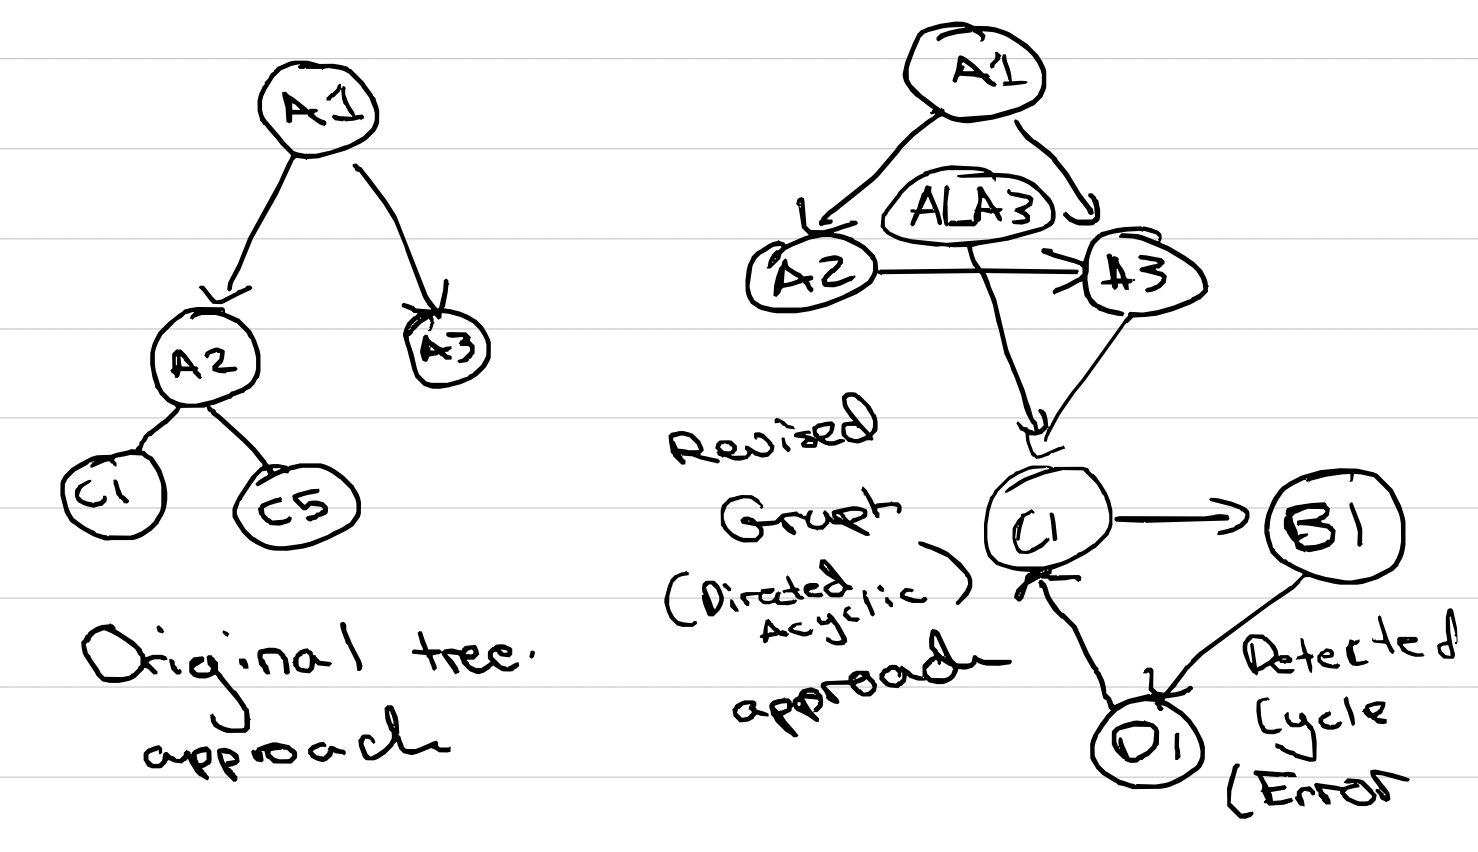 A1
A2
A3
C1
C5
Original tree.
approach
A1
ALA3
A2
A3
C1
B1
D1
Revised
Graph
(Directed
Acyclic)
approach
Detected
Cycle
(Error